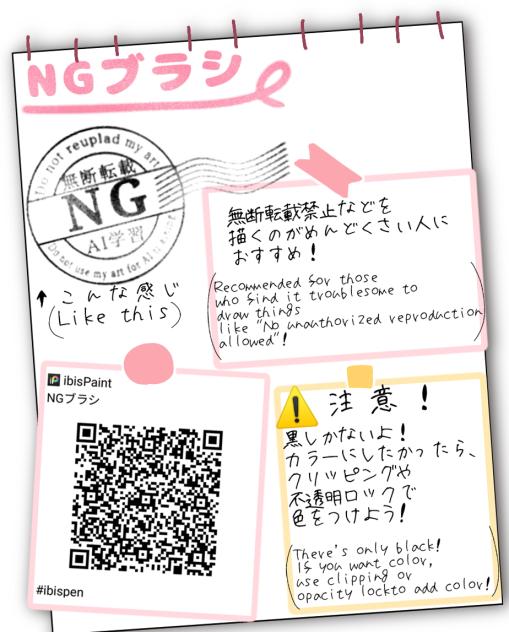 NGブラシ
Do not reuplad my art
無断転載
NG
AI学習
Do not use my art for AI
↑こんな感じ
(Like this)
無断転載禁止などを
描くのがめんどくさい人に
おすすめ!
(Recommended for those
who find it troublesome to
draw things
like "No unauthorized reproduction
allowed"!)
ibisPaint
NGブラシ
#ibispen
注意!
黒しかないよ!
カラーにしたかったら、
クリッピングや
不透明ロックで
色をつけよう!
(There's only black!
If you want color,
use clipping or
opacity lockto add color!)